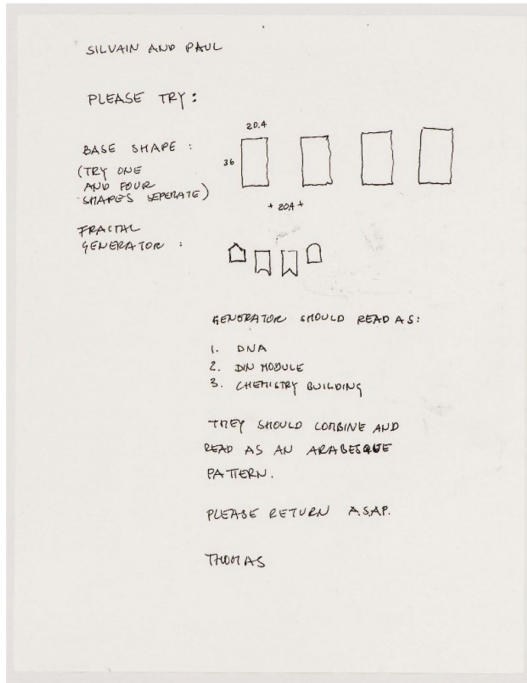 SILVAIN AND PAUL
PLEASE TRY:
20.4
BASE SHAPE :
36
(TRY ONE
AND FOUR
SHAPES SEPERATE)
+ 20.4 +
FRACTAL
GENERATOR :
GENERATOR SHOULD READ AS:
1. DNA
2. DIN MODULE
3. CHEMISTRY BUILDING
THEY SHOULD COMBINE AND
READ AS AN ARABESQUE
PATTERN.
PLEASE RETURN A.S.A.P.
THOMAS